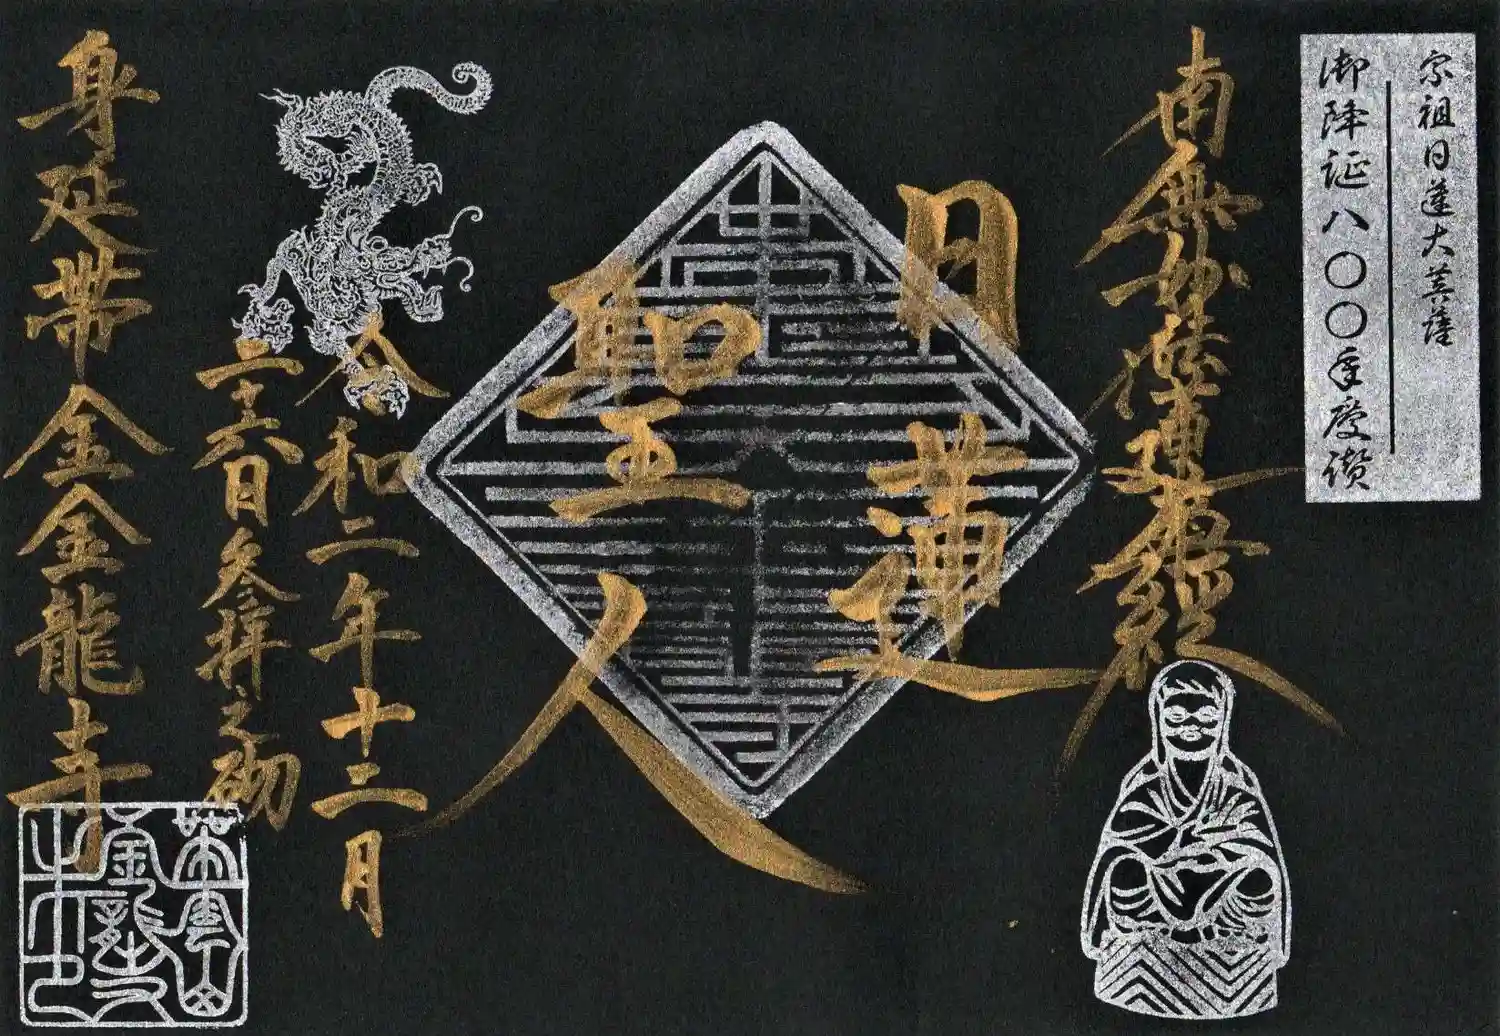 宗祖日蓮大菩薩
御降誕八〇〇年慶讃
南無妙法蓮華経
日蓮
聖人
令和二年十二月
二十六日参拝之砌
身延帯金金龍寺